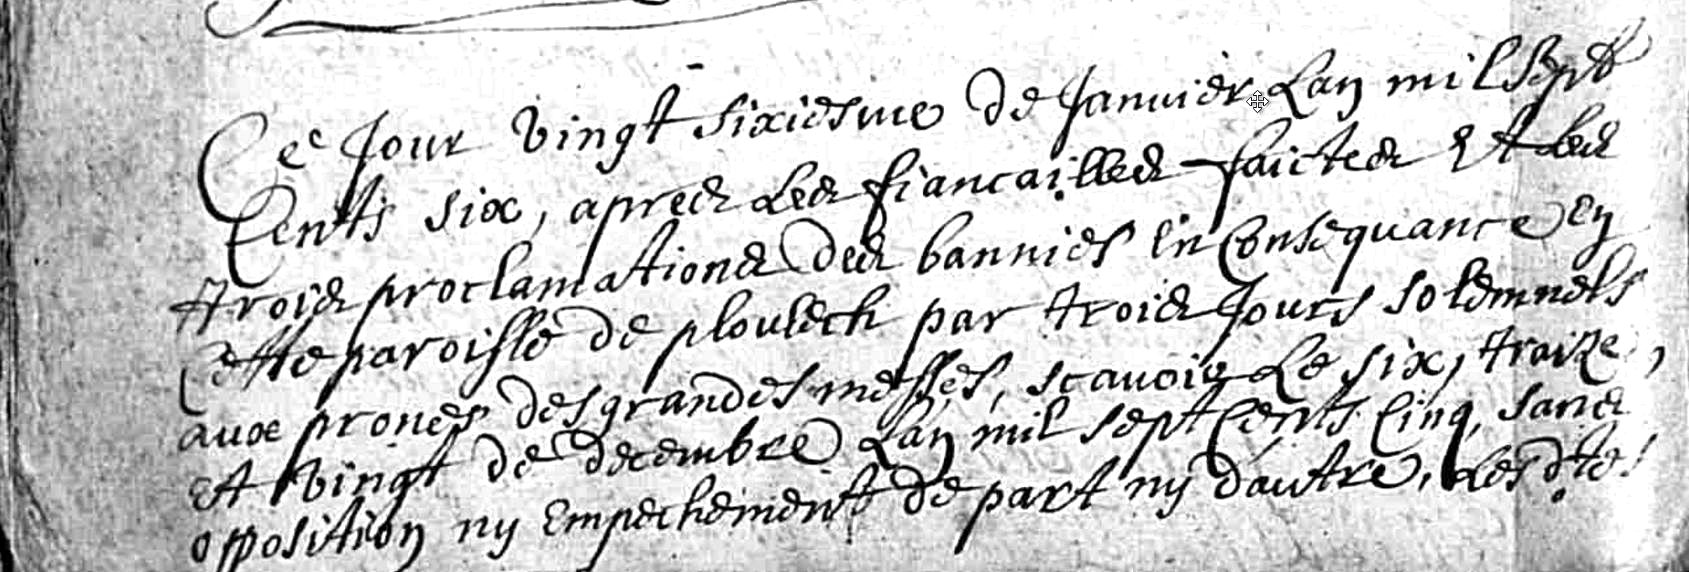 Ce Jour vingt sixiesme de Janvier Lan mil sept
Cents six, apres Les fiancailles faictes Et les
trois proclamations des bannies En Consequance En
Cette paroisse de ploulech par trois Jours solemnels
aux prones des grandes messes, scavoir Le six, traize,
Et vingt de decembre Lan mil sept Cents Cinq, sans
opposition ny Empechement de part ny dautre, Lesdtes